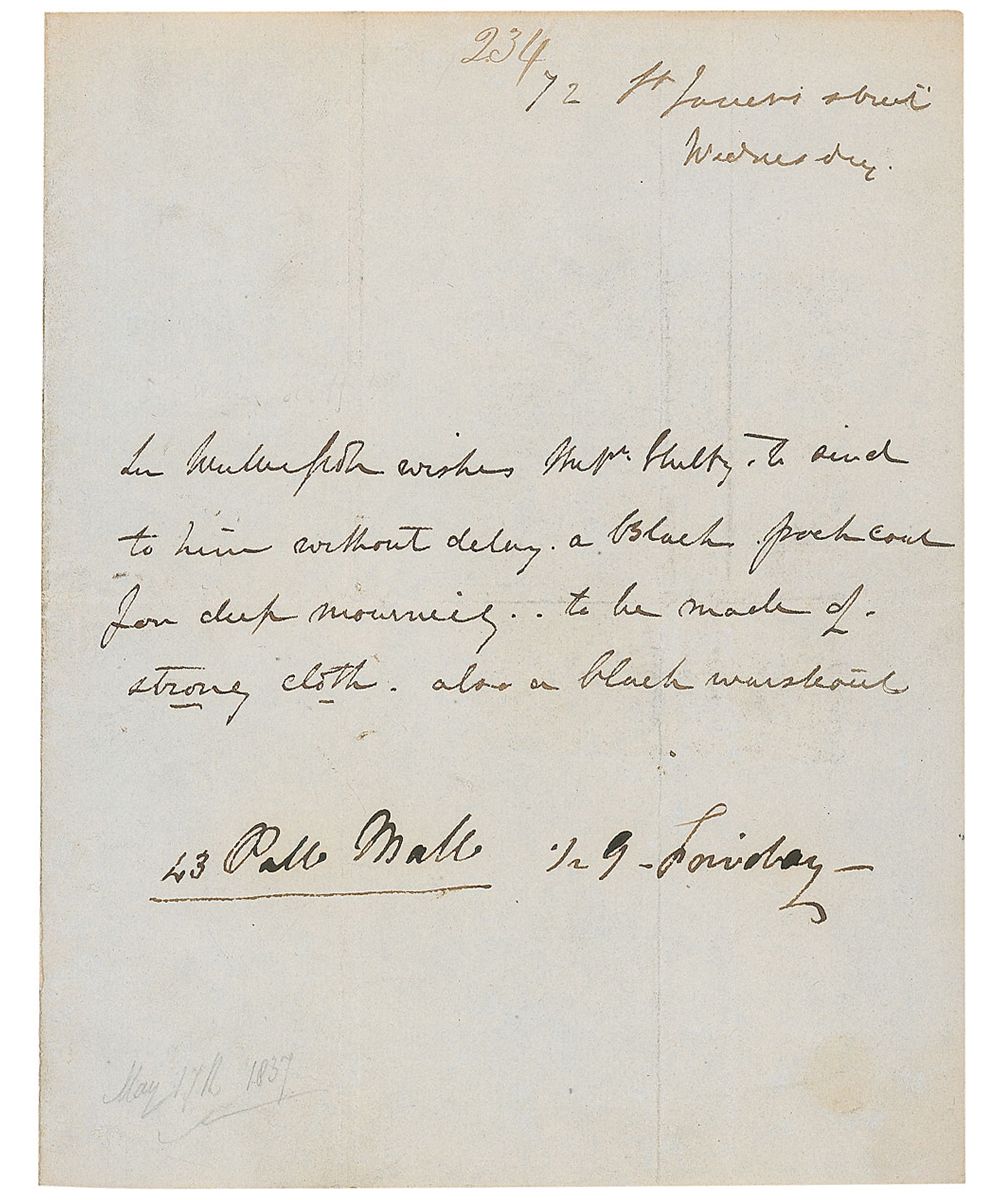 234
72 St James's street
Wednesday.
wishes Messrs to send
to him without delay. a Black frock coat
for deep mourning.. to be made of.
strong cloth. also a black waistcoat
43 Pall Mall 1/2 9 - Friday -
May 17th 1837